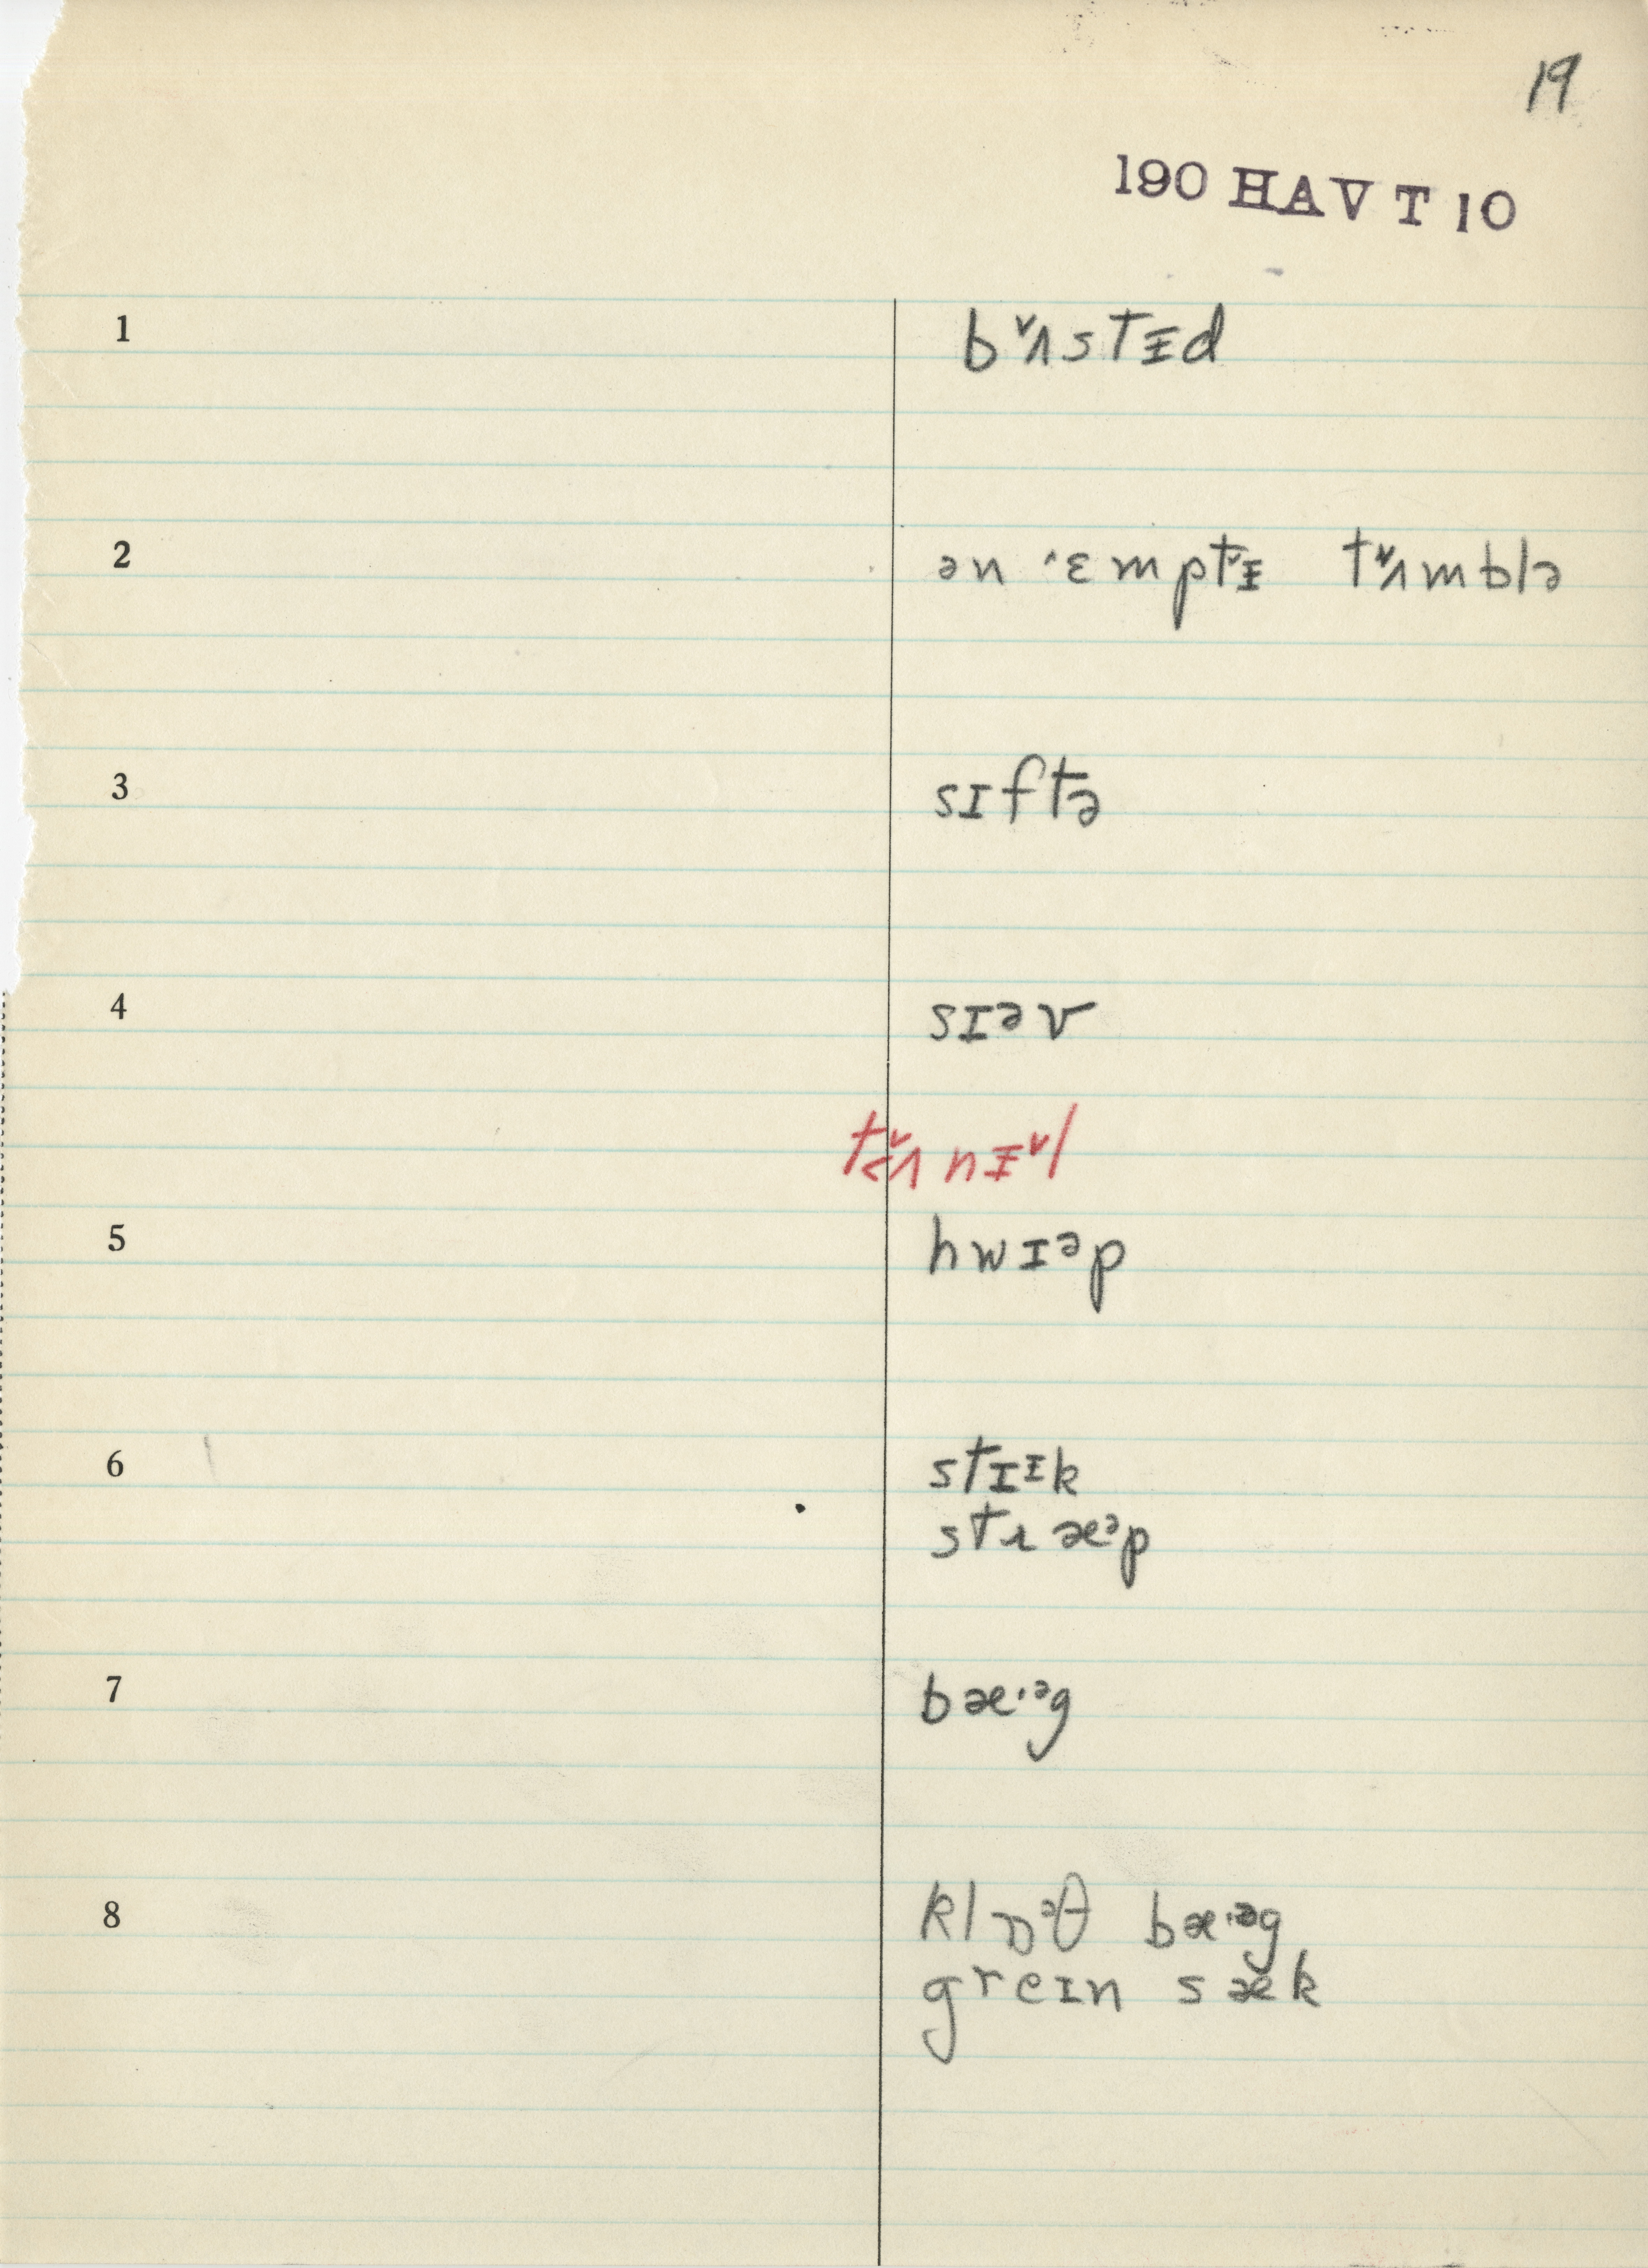 19
190 HAV T 10
1 bʌ˅stᵻd
2 ən ˈɛmptᵻ tʌ˅mblə
3 sɪftə
4 sɪəv
tʌ˅nᵻ˅l
5 hwɪəp
6 stɪᵻk
stɹæᵊp
7 bæ·ᵊg
8 klɒᵊθ bæ·ᵊg
greɪn sæk